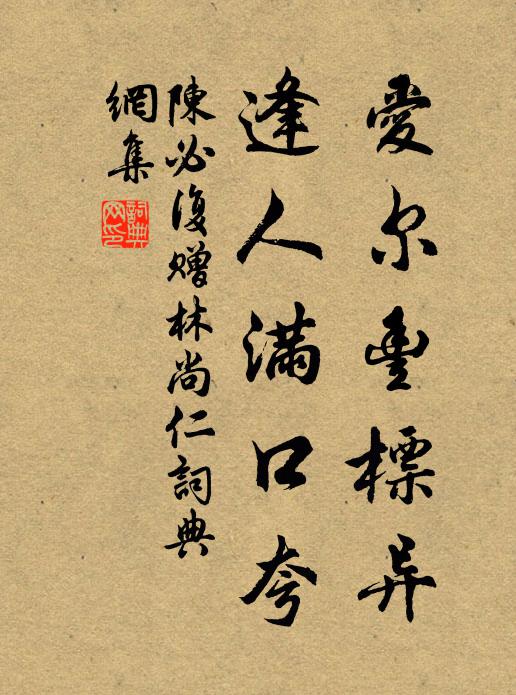 愛尔豊標异
逢人滿口夸
陳必復贈林尚仁詞典
網集
詞典
网印